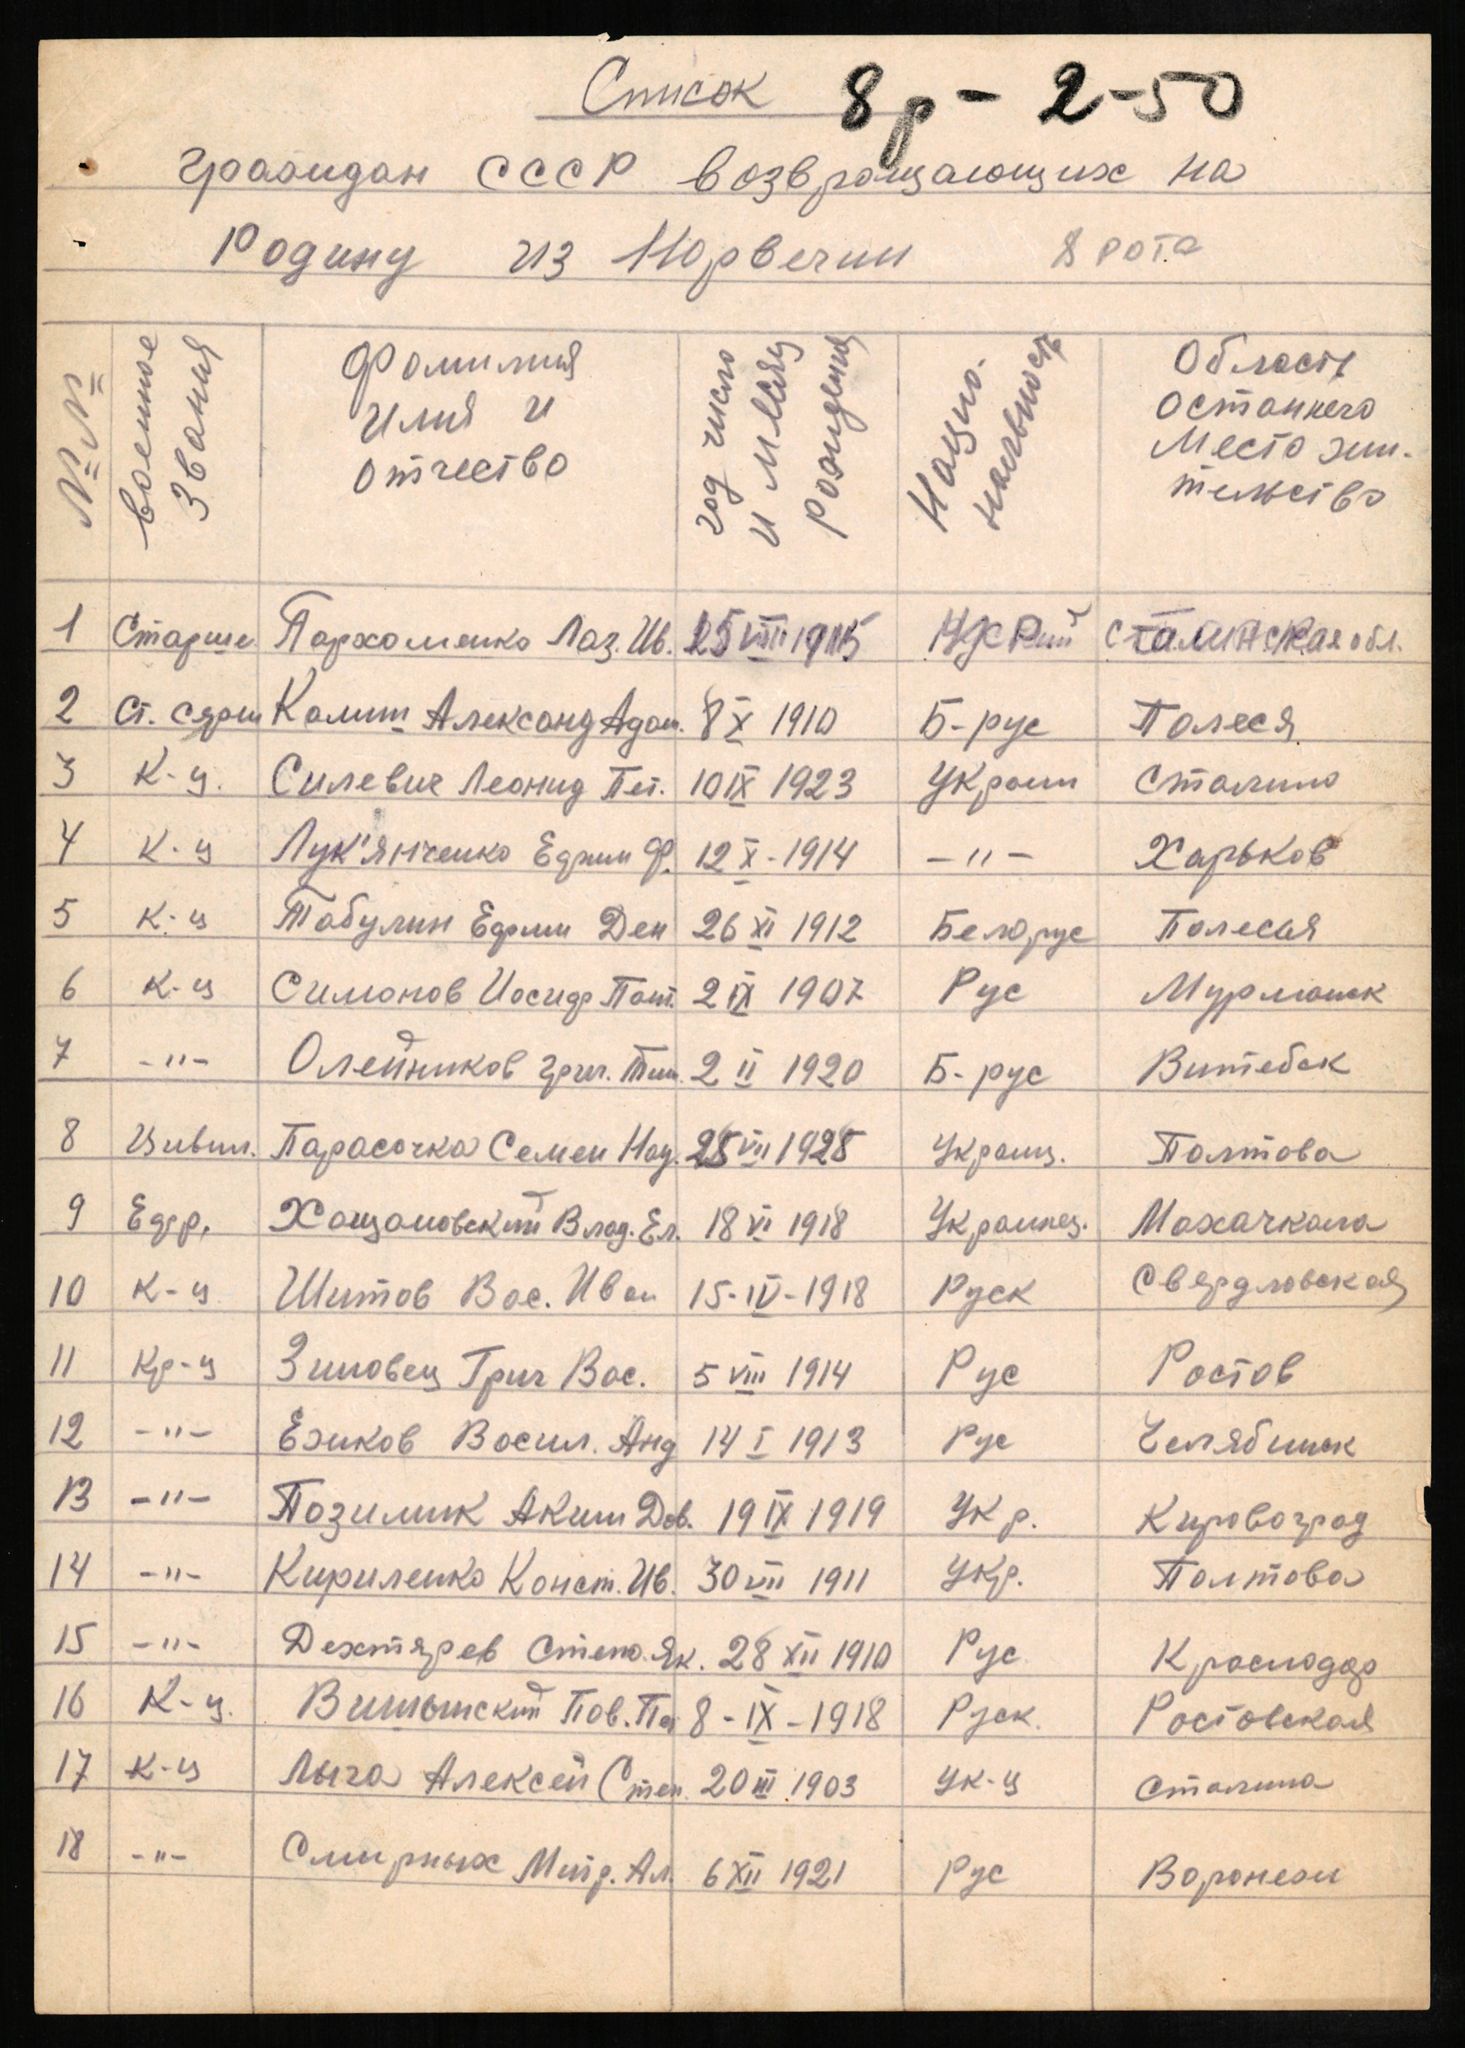 Список 8р - 2-50
Граждан СССР возвращающих на
Родину из Норвегии 8 рота
№ №
военное звания
Фамилия имя и отчество
год число и месяц рождения
Национальность
Область останнего место жительство
1 Старши. Пархоменко Лаз. Ив. 25 VIII 1915 Укр Сталинская обл.
2 Ст. серж Калиш Александ Адам. 8 X 1910 Б-рус Полеся
3 К-ц. Силевич Леонид Пет. 10 IX 1923 Украин Сталино
4 К-ц Лук'янченко Ефим Ф. 12 X - 1914 -"- Харьков
5 К-ц Табулин Ефим Ден 26 XI 1912 Белорус Полесья
6 К-ц Симонов Иосиф Пот. 2 IX 1907 Рус Мурманск
7 -"- Олейников Григ. Тим. 2 II 1920 Б-рус Витебск
8 Цивил. Парасочка Семен Нау. 25 VII 1925 Украиц. Полтова
9 Ефр. Хащановский Влад. Ел. 18 VI 1918 Украинец. Махачкала
10 К-ц Шитов Вас. Иван 15-IV-1918 Руск Свердловская
11 Кр-ц Зиновец Григ Вас. 5 VIII 1914 Рус Ростов
12 -"- Ежков Васил. Анд 14 I 1913 Рус Челябинск
13 -"- Позилик Аким Дав. 19 IX 1919 Укр. Кировоград
14 -"- Кириленко Конст. Ив. 30 VII 1911 Укр. Полтова
15 -"- Дехтярев Степа. Як. 28 XII 1910 Рус Краснодар
16 К-ц. Пав. 8-IX-1918 Руск. Ростовская
17 К-ц Лыга Алексей Степ. 20 III 1903 Ук-ц Сталина
18 -"- Смирных Ал. 6 XII 1921 Рус Воронежи